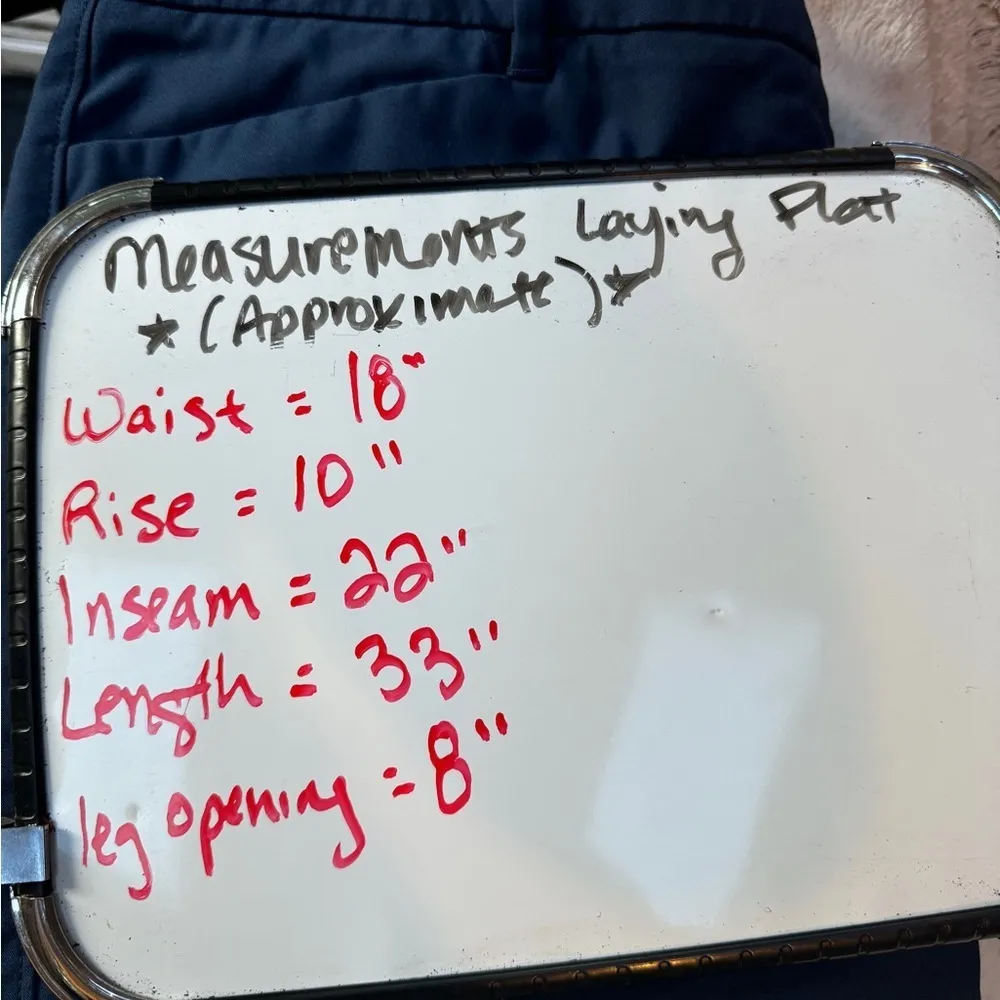 Measurements Laying Flat
★ (Approximate) ★
Waist = 18"
Rise = 10"
Inseam = 22"
Length = 33"
leg opening = 8"